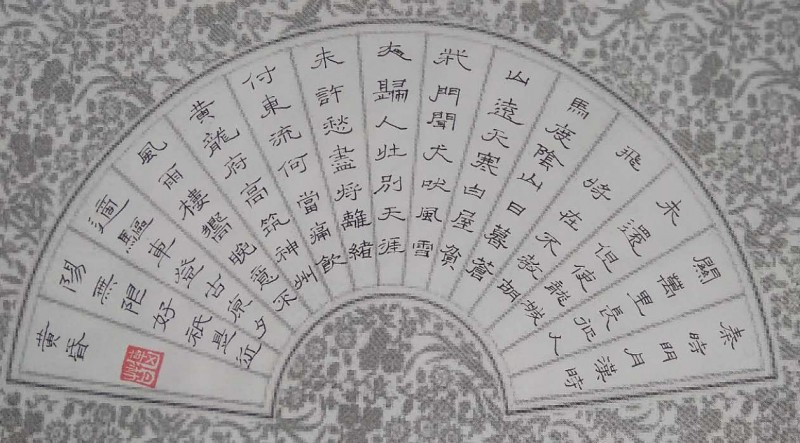 秦時明月漢時
關萬里長征人
未還但使龍城
飛將在不教胡
馬度陰山日暮蒼
山遠天寒白屋貧
柴門聞犬吠風雪
夜歸人壯別天涯
未許愁盡將離緒
付東流何當痛飲
黃龍府高筑神州
風雨樓嚮晚意不
適驅車登古原夕
陽無限好祇是近
黃昏